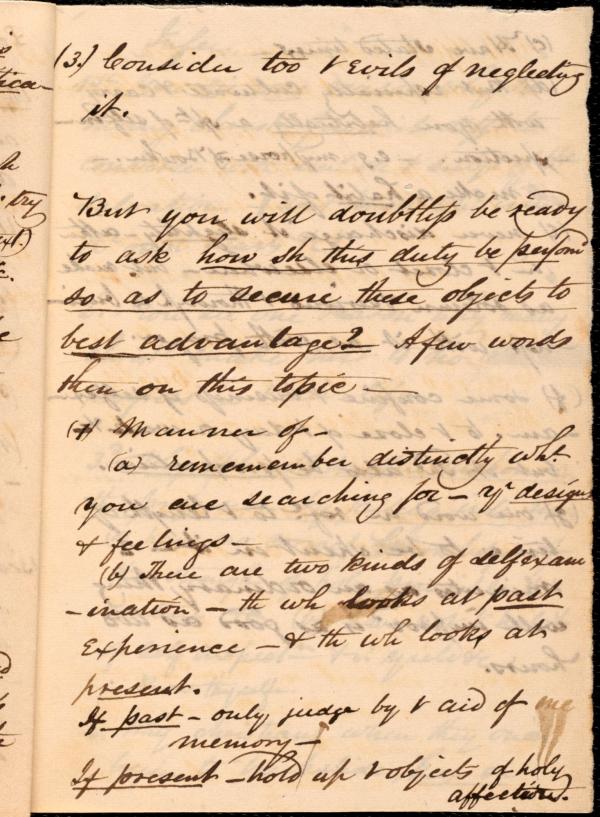 (3.) Consider too & Evils of neglecting
it.
But you will doubtless be ready
to ask how sh this duty be performd
so as to secure these objects to
best advantage? A few words
then on this topic —
(4) Manner of —
(a) rememember distinctly wht
you are searching for — yr designs
& feelings —
(b) There are two kinds of selfexam
-ination — th wh looks at past
Experience — & th wh looks at
present.
If past — only judge by & aid of
memory —
If present — hold up & objects of holy
affection.